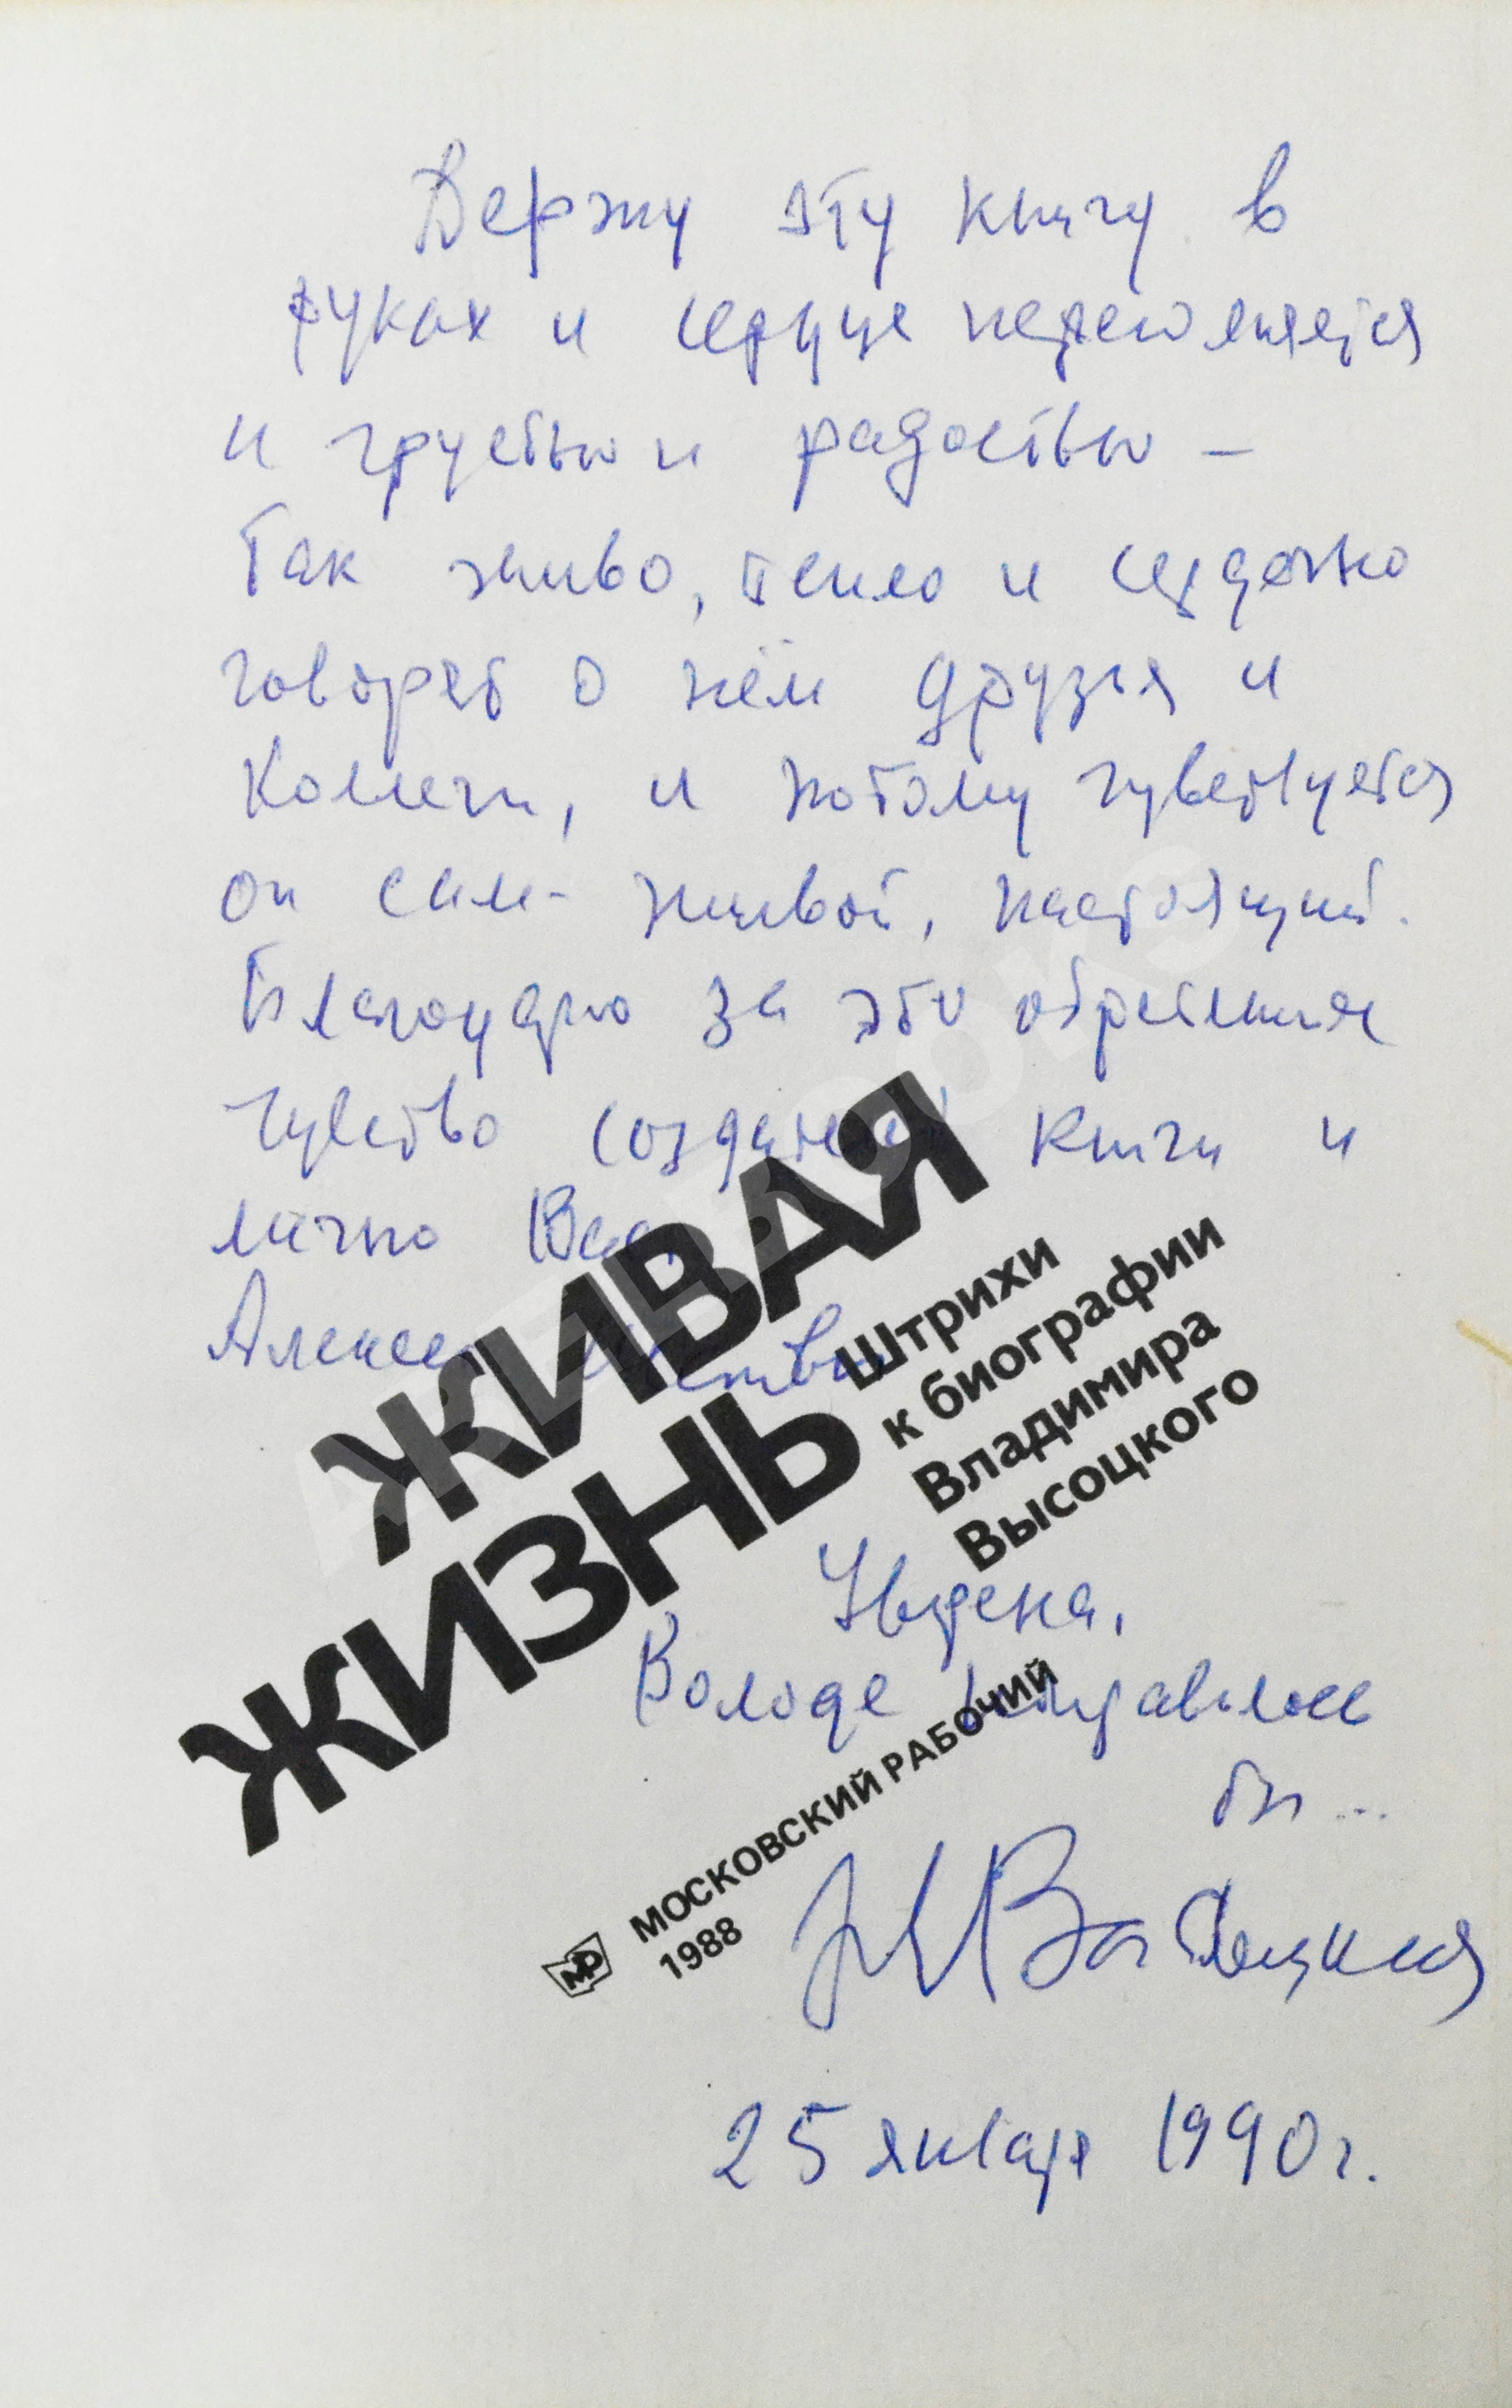 Держу эту книгу в
руках и сердце переполняется
и грустью и радостью –
Так живо, тепло и сердечно
говорят о нём друзья и
коллеги, и потому чувствуется
он сам – живой, настоящий.
Благодарю за это обретенное
чувство создателей книги и
лично Вас,
Алексей
ЖИВАЯ
ЖИЗНЬ
Штрихи
к биографии
Владимира
Высоцкого
Уверена,
Володе понравилось
бы...
МОСКОВСКИЙ РАБОЧИЙ
1988
МР
25 января 1990 г.